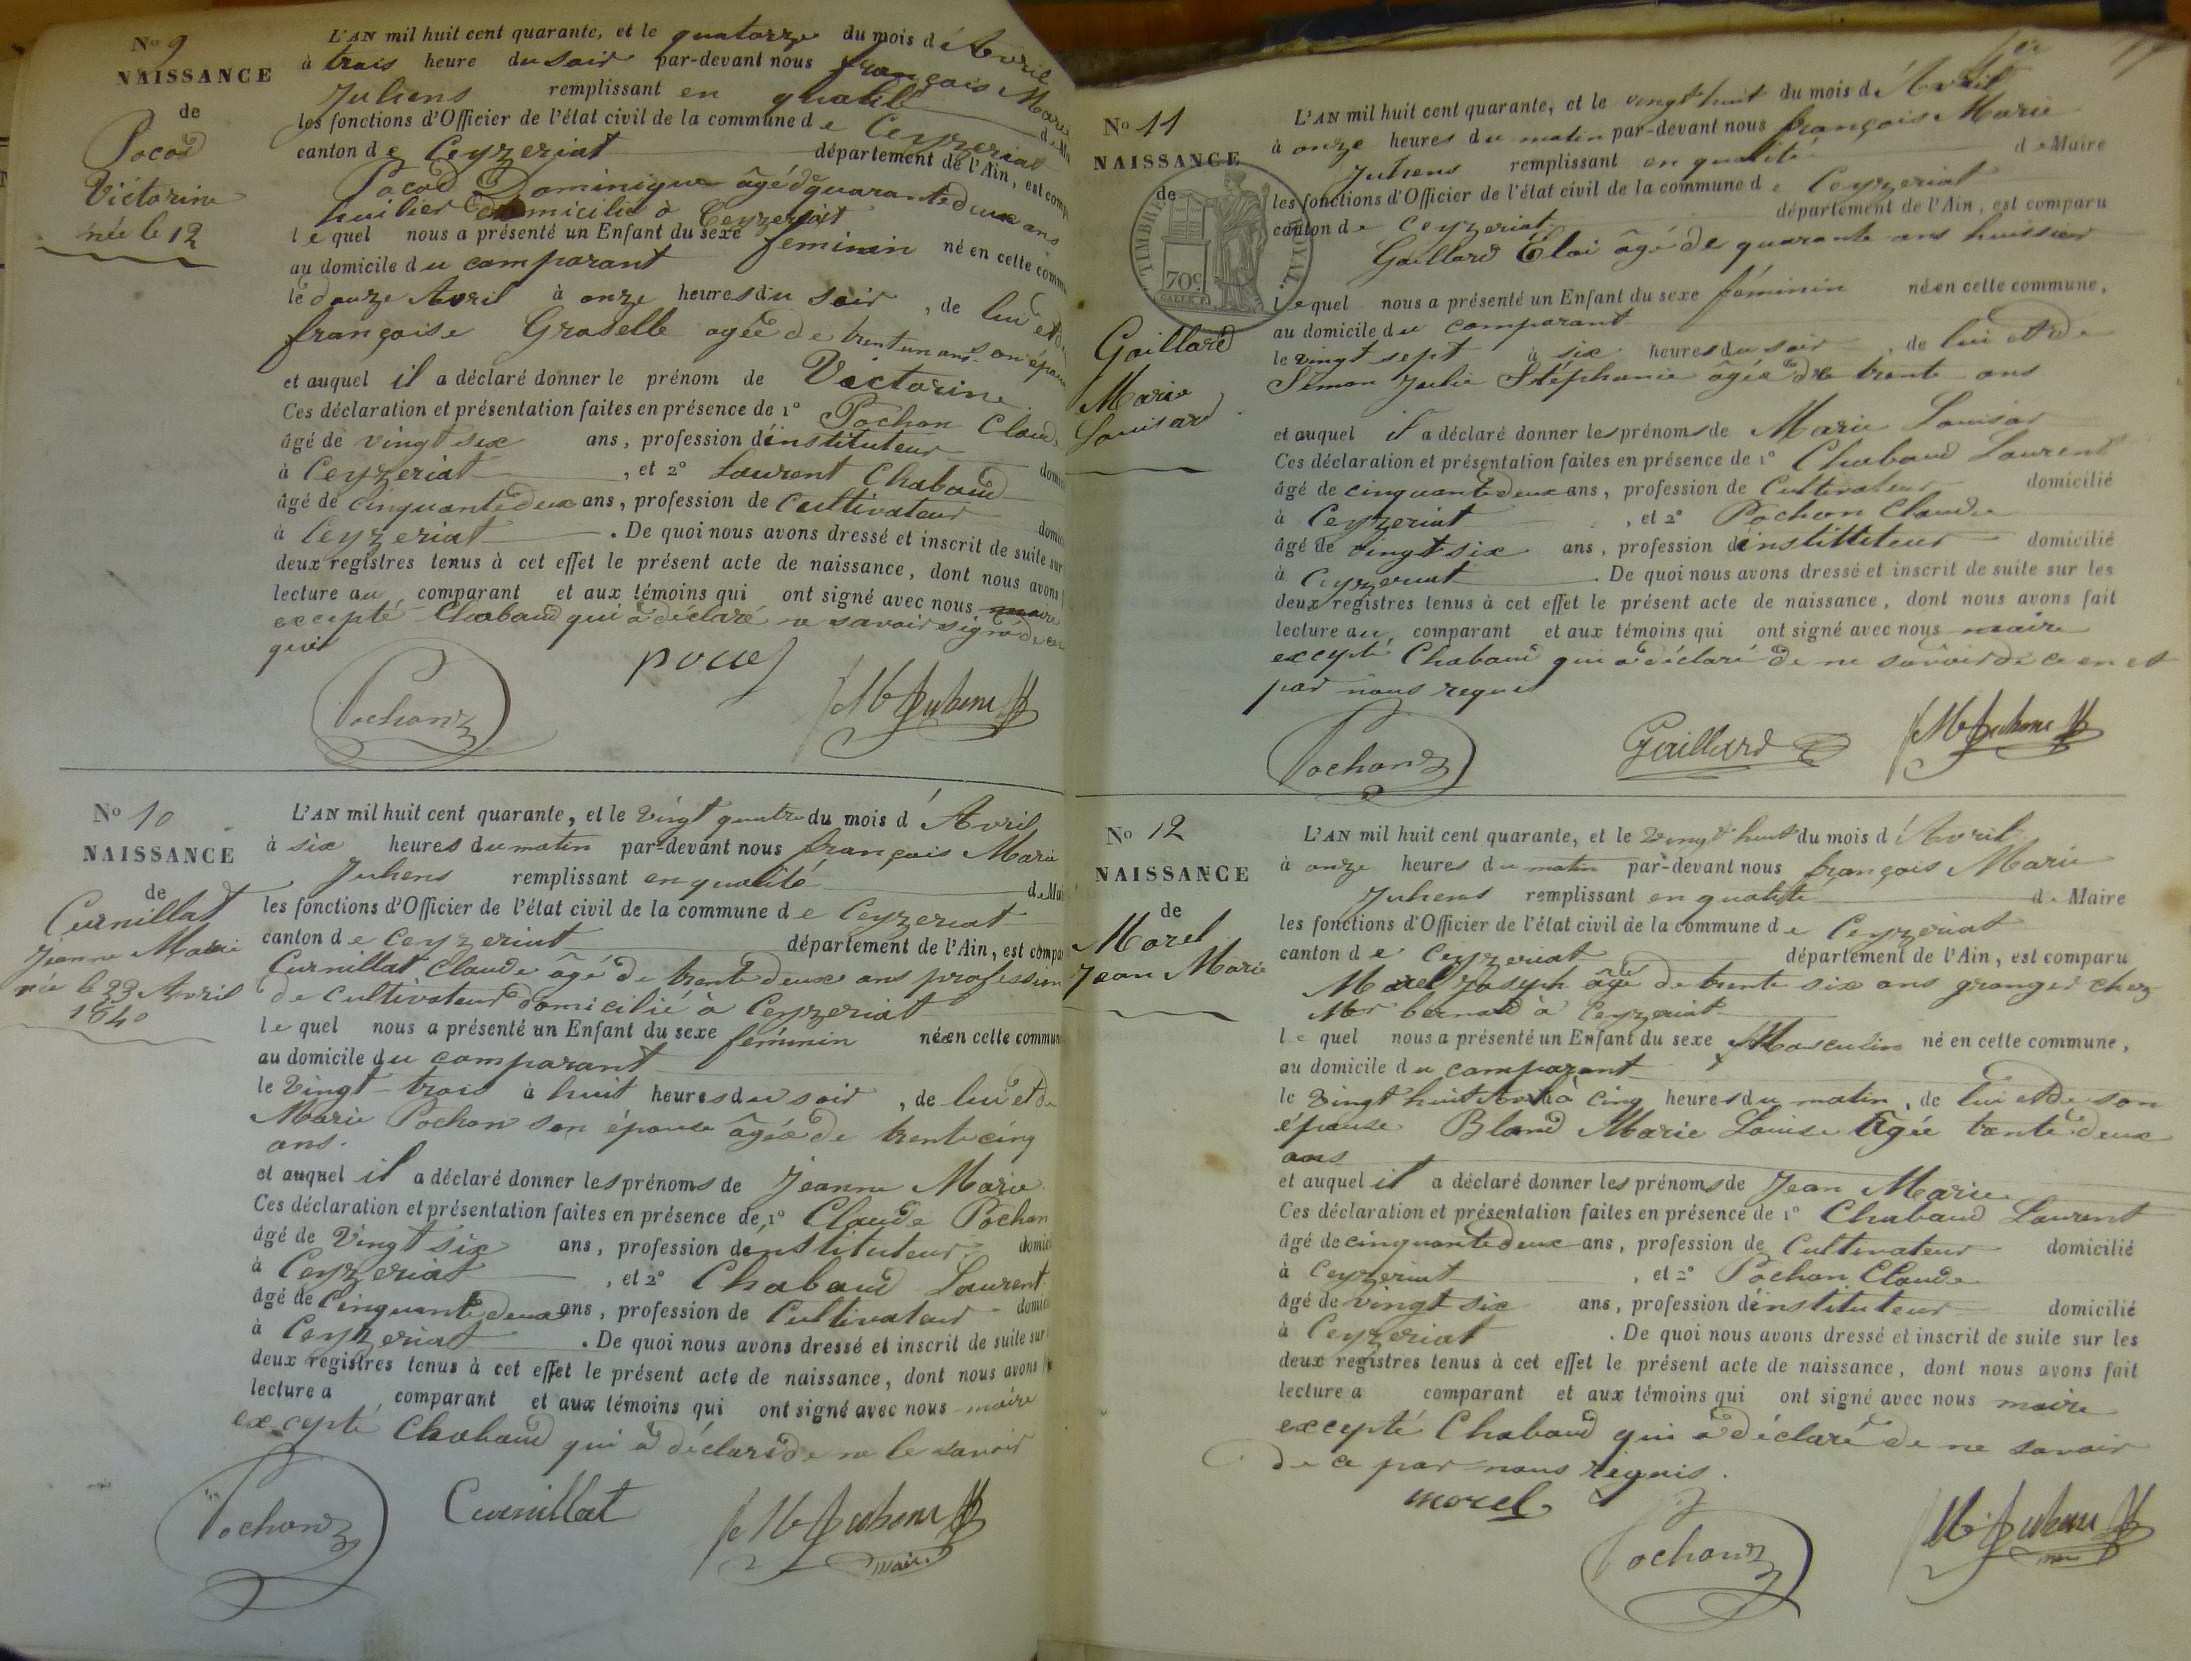 No 9
NAISSANCE
de
Pocod
Victorine
née le 12
L'AN mil huit cent quarante, et le quatorze du mois d'Avril
à trois heure du soir par-devant nous françois Marie
Juhens remplissant en qualité d
les fonctions d'Officier de l'état civil de la commune de Ceyzeriat
canton de Ceyzeriat département de l'Ain, est comp
Pocod Dominique âgé de quarante deux ans
huilier domicilié à Ceyzeriat
lequel nous a présenté un Enfant du sexe féminin né en cette commu
au domicile du comparant
le douze Avril à onze heures du soir, de lui et de
françoise Graselle agée de trent un ans son épouse
et auquel il a déclaré donner le prénom de Victorine
Ces déclaration et présentation faites en présence de 1° Pochon Claud
âgé de vingt six ans, profession d'instituteur domi
à Ceyzeriat, et 2° Laurent Chaboud
âgé de cinquante deux ans, profession de Cultivateur
à Ceyzeriat. De quoi nous avons dressé et inscrit de suite sur
deux registres tenus à cet effet le présent acte de naissance, dont nous avons
lecture au comparant et aux témoins qui ont signé avec nous maire
excepté Chaboud qui a déclaré ne savoir signé de ce
Pochon
No 10
NAISSANCE
de
Curnillat
Jeanne Marie
née le 23 Avril
1840
L'AN mil huit cent quarante, et le Vingt quatre du mois d'Avril
à six heures du matin par-devant nous françois Marie
Juhens remplissant en qualité de Mai
les fonctions d'Officier de l'état civil de la commune de Ceyzeriat
canton de Ceyzeriat département de l'Ain, est compa
Curnillat Claude âgé de trente deux ans profession
de cultivateur domicilié à Ceyzeriat
lequel nous a présenté un Enfant du sexe féminin née en cette commun
au domicile du comparant
le Vingt trois à huit heures du soir, de lui et de
Marie Pochon son épouse âgée de trente cinq
ans.
et auquel il a déclaré donner les prénoms de Jeanne Marie
Ces déclaration et présentation faites en présence de 1° Claude Pochon
âgé de Vingt six ans, profession d'instituteur domici
à Ceyzeriat, et 2° Chaboud Laurent
âgé de Cinquante deux ans, profession de Cultivateur domici
à Ceyzeriat. De quoi nous avons dressé et inscrit de suite sur
deux registres tenus à cet effet le présent acte de naissance, dont nous avons
lecture a comparant et aux témoins qui ont signé avec nous maire
excepté Chaboud qui a déclaré de ne le savoir
Pochon Curnillat
maire
No 11
NAISSANCE
de
TIMBRE ROYAL
70c
Gaillard
Marie
Louisard
L'AN mil huit cent quarante, et le vingt huit du mois d'Avril
à onze heures du matin par-devant nous françois Marie
Juhens remplissant en qualité de Maire
les fonctions d'Officier de l'état civil de la commune de Ceyzeriat
canton de Ceyzeriat département de l'Ain, est comparu
Gaillard Eloi âgé de quarante ans huissier
lequel nous a présenté un Enfant du sexe féminin née en cette commune,
au domicile du comparant
le vingt sept à six heures du soir, de lui et de
Simon Julie Stéphanie âgée de trente ans
et auquel il a déclaré donner les prénoms de Marie Louisar
Ces déclaration et présentation faites en présence de 1° Chaboud Laurent
âgé de cinquante deux ans, profession de Cultivateur domicilié
à Ceyzeriat, et 2° Pochon Claude
âgé de vingt six ans, profession d'instituteur domicilié
à Ceyzeriat. De quoi nous avons dressé et inscrit de suite sur les
deux registres tenus à cet effet le présent acte de naissance, dont nous avons fait
lecture au comparant et aux témoins qui ont signé avec nous maire
excepté Chaboud qui a déclaré de ne savoir de ce en et
par nous requis
Pochon Gaillard
No 12
NAISSANCE
de
Morel
Jean Marie
L'AN mil huit cent quarante, et le Vingt huit du mois d'Avril
à onze heures du matin par-devant nous françois Marie
Juhens remplissant en qualité de Maire
les fonctions d'Officier de l'état civil de la commune de Ceyzeriat
canton de Ceyzeriat département de l'Ain, est comparu
Morel Joseph âgé de trente six ans granger chez
Mor bernard à Ceyzeriat
lequel nous a présenté un Enfant du sexe Masculin né en cette commune,
au domicile du comparant
le Vingt huit Avril à cinq heures du matin, de lui et de son
épouse Bland Marie Louise âgée trente deux
ans
et auquel il a déclaré donner les prénoms de Jean Marie
Ces déclaration et présentation faites en présence de 1° Chaboud Laurent
âgé de cinquante deux ans, profession de Cultivateur domicilié
à Ceyzeriat, et 2° Pochon Claude
âgé de vingt six ans, profession d'instituteur domicilié
à Ceyzeriat. De quoi nous avons dressé et inscrit de suite sur les
deux registres tenus à cet effet le présent acte de naissance, dont nous avons fait
lecture a comparant et aux témoins qui ont signé avec nous maire
excepté Chaboud qui a déclaré de ne savoir
de ce par nous requis.
morel
Pochon